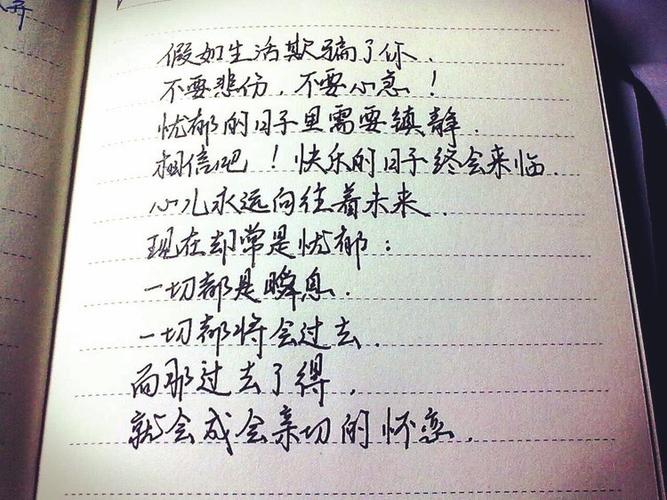 假如生活欺骗了你.
不要悲伤,不要心急!
忧郁的日子里需要镇静.
相信吧!快乐的日子终会来临.
心儿永远向往着未来.
现在却常是忧郁:
一切都是瞬息.
一切都将会过去.
而那过去了得,
就会成会亲切的怀恋.